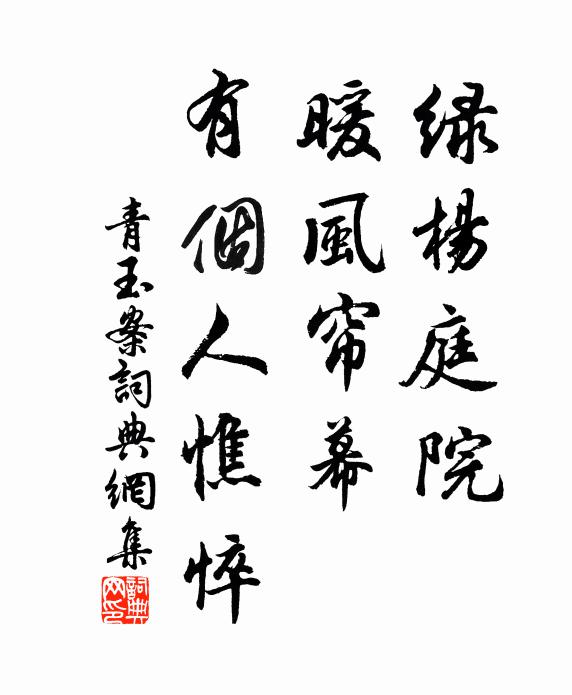 绿楊庭院
暖風帘幕
有個人憔悴
青玉案詞典網集
詞典网印